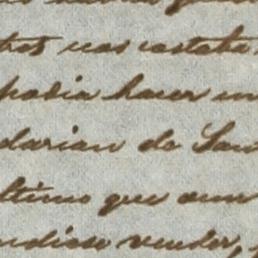 tras nos costaba
podia hacer un
darian de San
ltimo que aun
ndiese vender,